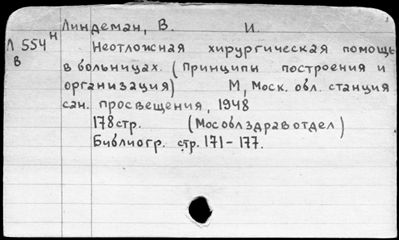 Линдеман, В. И.
Л 554 н
в
Неотложная хирургическая помощь
в больницах. (Принципы построения и
организация) М, Моск. обл. станция
сан. просвещения, 1948
178 стр. (Мособлздравотдел)
Библиогр. стр. 171-177.